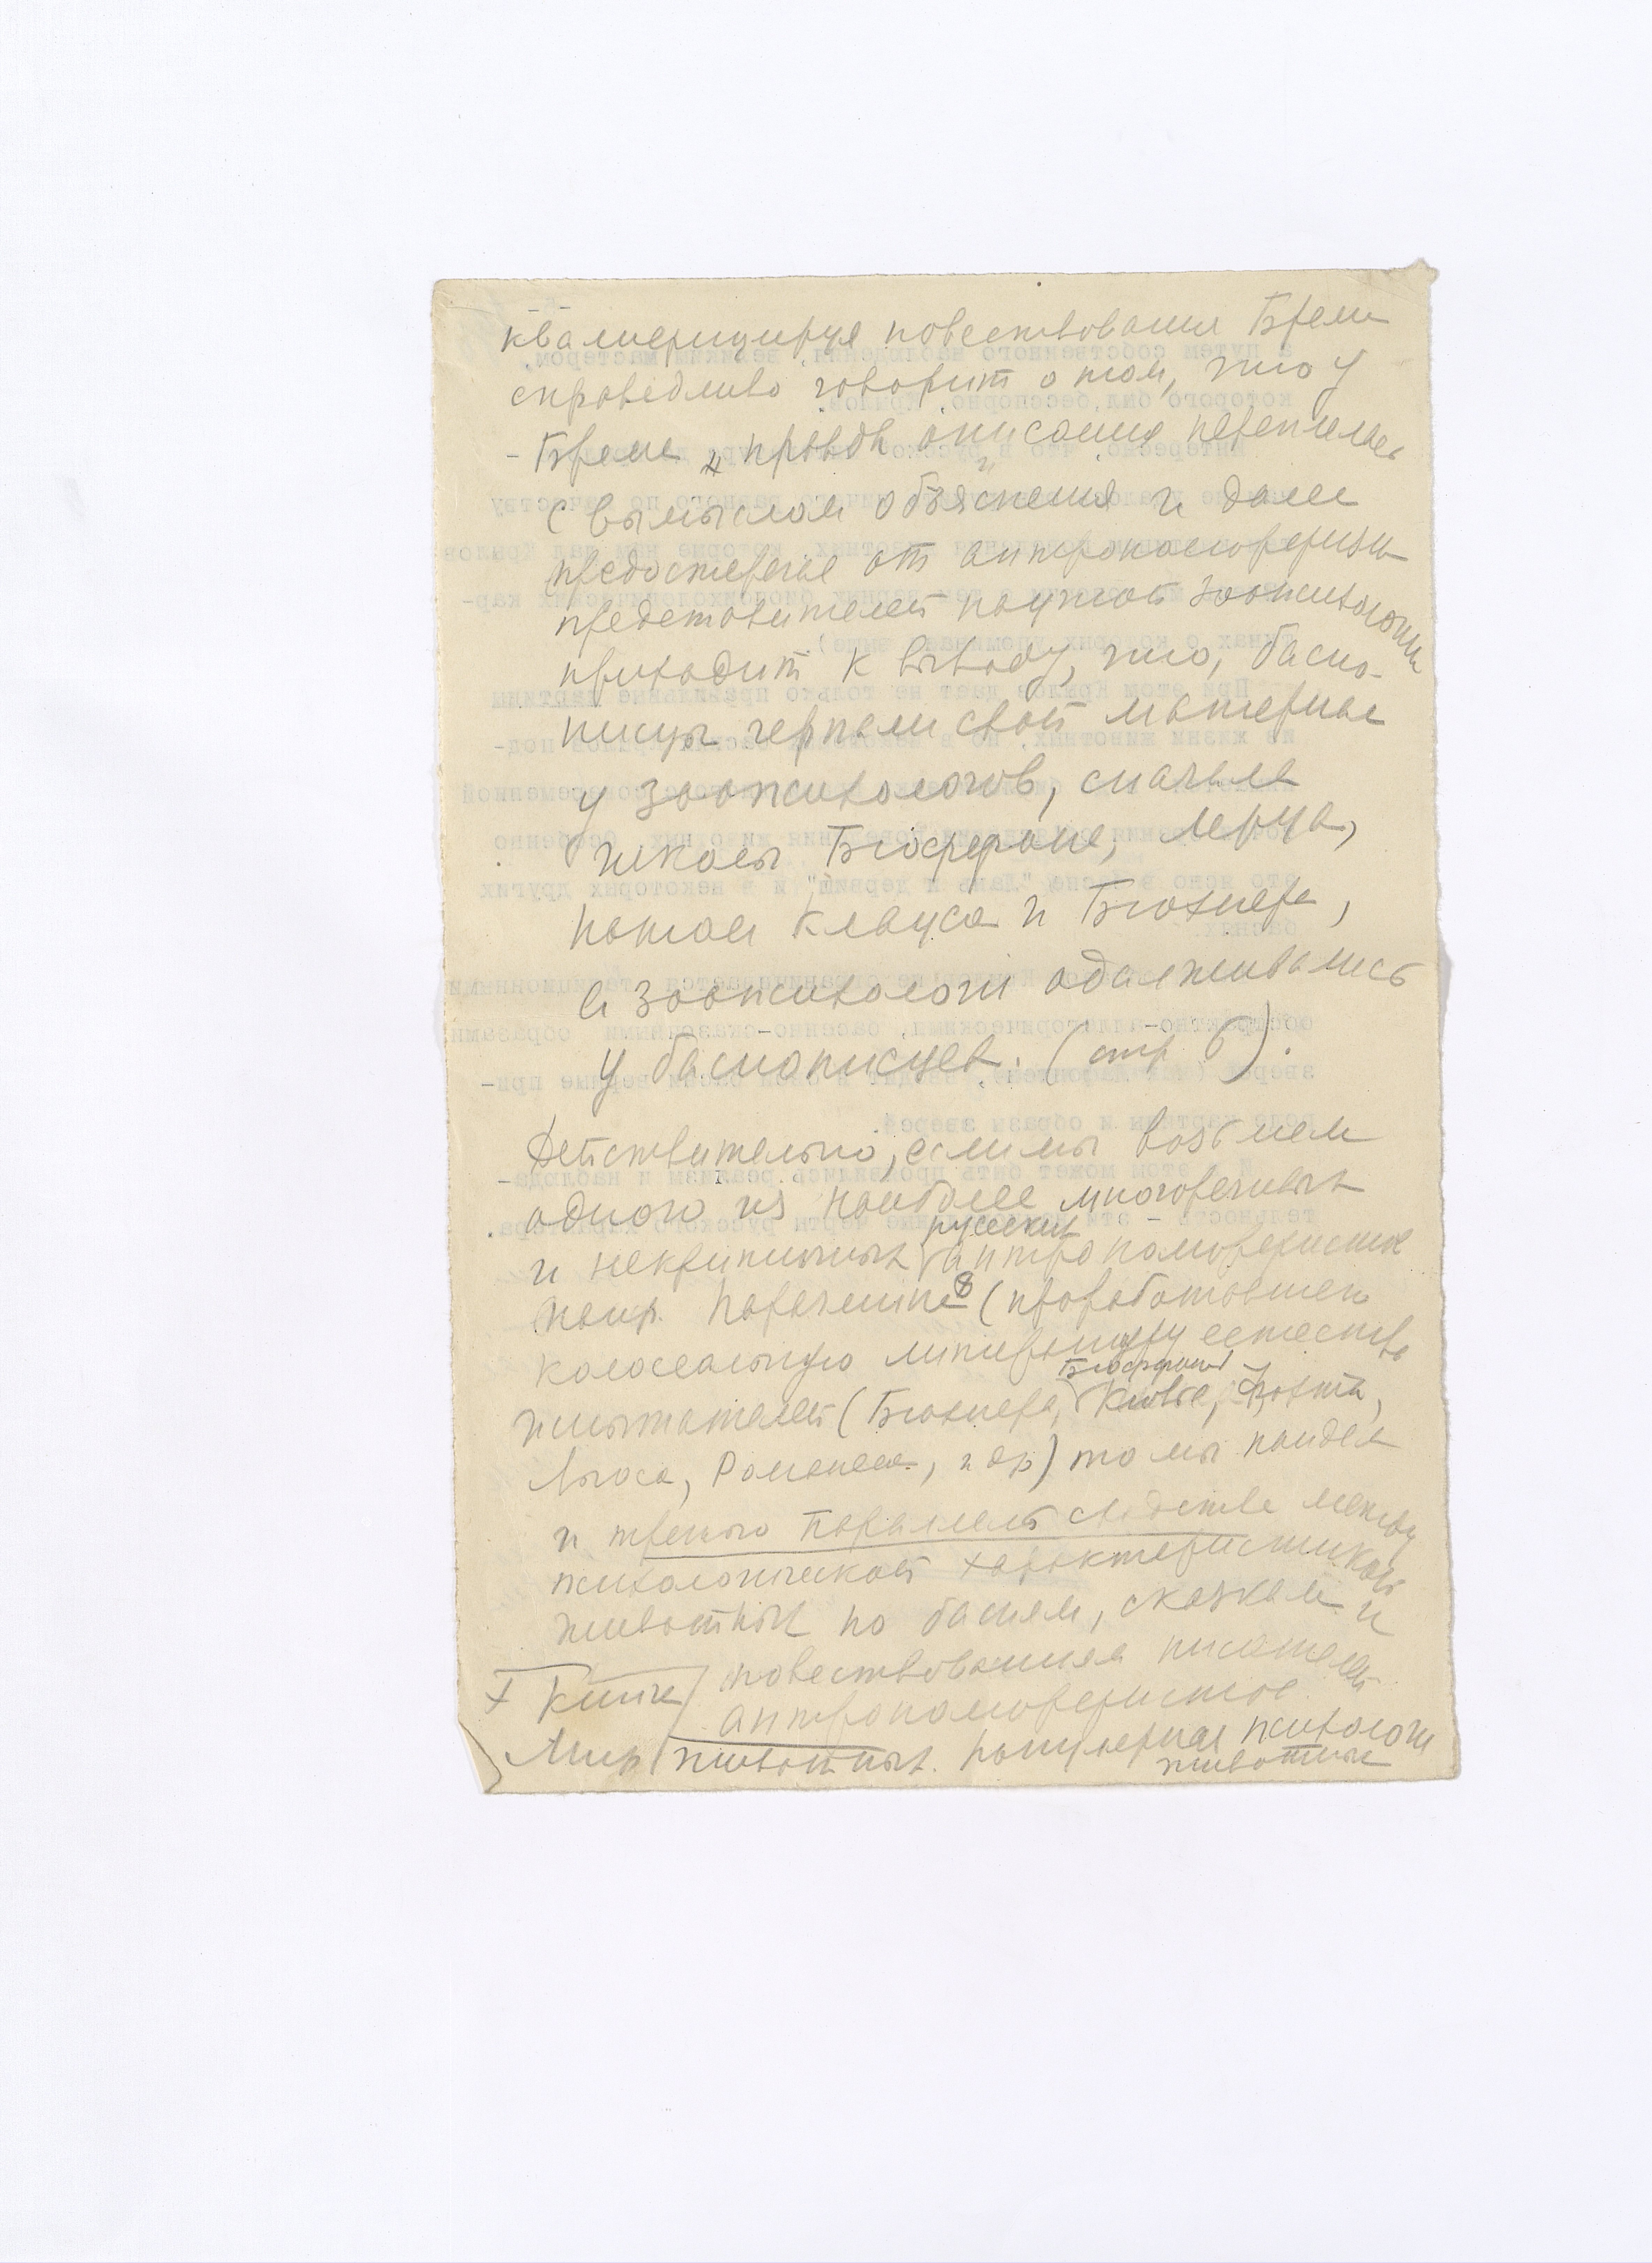 квалифицируя повествования Брема
справедливо говорит о том, что у
- Брема "правда описания переплелась
с вымыслом объяснения" и далее
предостерегая от антропоморфизма
представителей научной зоопсихологии
приходит к выводу, что, басно-
писцы черпали свой материал
у зоопсихологов, сначала
школы Бюффона, Леруа,
потом Клауса и Бюхнера,
а зоопсихологи одалживались
у баснописцев. (стр 6).
Действительно, если мы возьмем
одного из наиболее многоречивых
и некритичных русских антропоморфистов
напр. (проработавшего
колоссальную литературу естество
испытателей (Бюхнера, Бюффона, Кювье, Фохта,
Романеса, и др) то мы найдем
и третью параллель сходства между
психологической характеристикой
животных по басням, сказкам и
повествованиям писателей
антропоморфистов.
+ Книга
Мир животных. популярная психология
животных